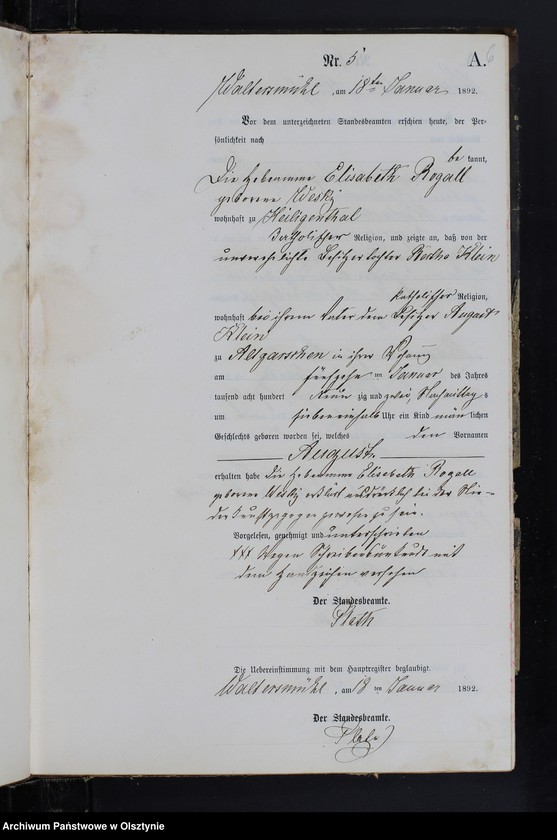 Nr. 5
A. 6
Waltersmühl, am 18ten Januar 1892.
Vor dem unterzeichneten Standesbeamten erschien heute, der Per-
sönlichkeit nach
be kannt,
Die Hebamme Elisabeth Rogall
geborene Weski
wohnhaft zu Heiligenthal
katholischer Religion, und zeigte an, daß von der
unverehelichte Besitzertochter Klein
katholischer Religion,
wohnhaft bei ihrem Vater dem Besitzer August
Klein
zu Altgarschen in ihrer
am ten Januar des Jahres
tausend acht hundert neun zig und zwei, Nachmittags
um siebeneinhalb Uhr ein Kind män lichen
Geschlechts geboren worden sei, welches den Vornamen
August
erhalten habe Die Hebamme Elisabeth Rogall
geborene Weski erklärt ausdrücklich bei der Nie-
derkunft zugegen gewesen zu sein.
Vorgelesen, genehmigt und unterschrieben
XXX wegen Schreibensunkunde mit
dem Handzeichen versehen
Der Standesbeamte.
Die Uebereinstimmung mit dem Hauptregister beglaubigt.
Waltersmühl, am 18 ten Januar 1892.
Der Standesbeamte.
Archiwum Państwowe w Olsztynie